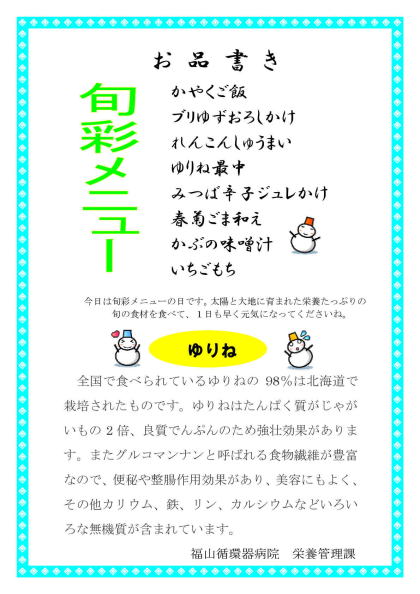 お品書き
旬彩メニュー
かやくご飯
ブリゆずおろしかけ
れんこんしゅうまい
ゆりね最中
みつば辛子ジュレかけ
春菊ごま和え
かぶの味噌汁
いちごもち
今日は旬彩メニューの日です。太陽と大地に育まれた栄養たっぷりの
旬の食材を食べて、１日も早く元気になってくださいね。
ゆりね
全国で食べられているゆりねの 98％は北海道で
栽培されたものです。ゆりねはたんぱく質がじゃが
いもの 2 倍、良質でんぷんのため強壮効果がありま
す。またグルコマンナンと呼ばれる食物繊維が豊富
なので、便秘や整腸作用効果があり、美容にもよく、
その他カリウム、鉄、リン、カルシウムなどいろい
ろな無機質が含まれています。
福山循環器病院　栄養管理課